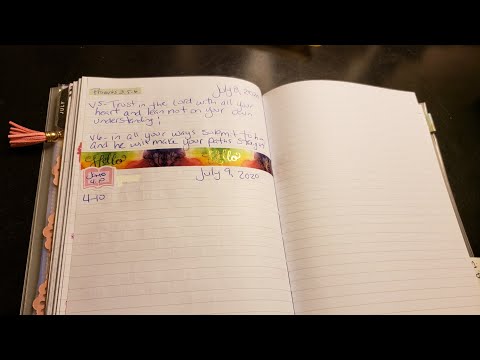 Proverbs 3:5-6
July 8, 2020
V5- Trust in the Lord with all your
heart and lean not on your own
understanding;
V6- in all your ways submit to him
and he will make your paths straight
Hello Hello
July 9, 2020
James
4-10
JULY